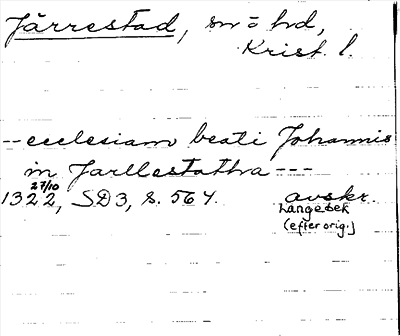 Järrestad, sn = hd,
Krist. l.
-- ecclesiam beati Johannis
in Jarllestatha ---
27/10
1322, SD3, s. 564. avskr.
Langebek
(efter orig.)